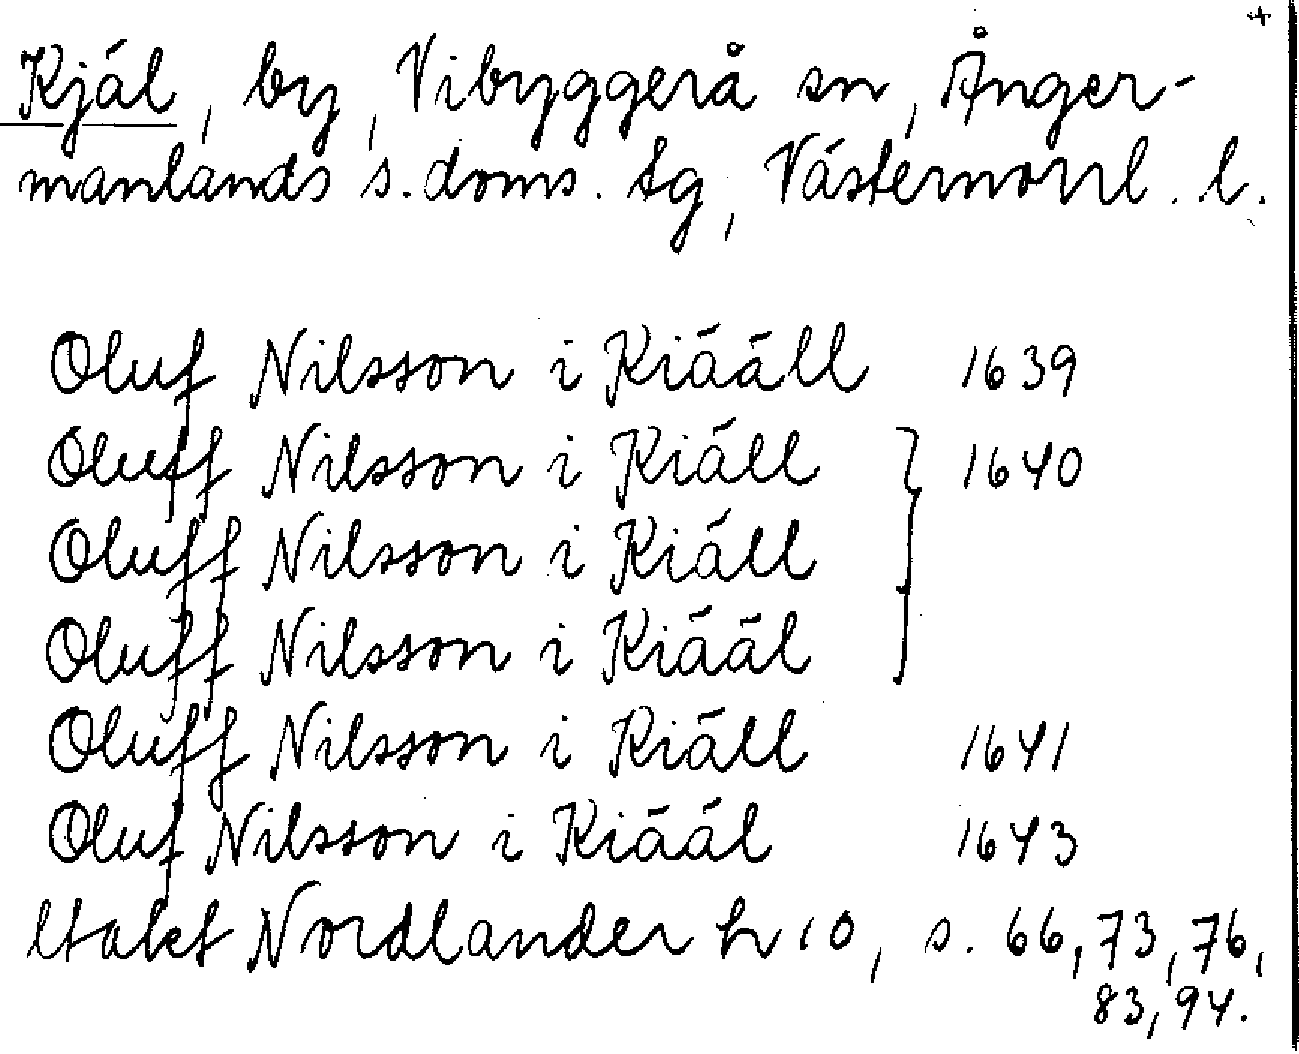 Kjäl, by, Vibyggerå sn, Ånger-
manlands s. doms. tg, Västernorrl. l.
Oluf Nilsson i Kiääll 1639
Oluff Nilsson i Kiäll } 1640
Oluff Nilsson i Kiäll
Oluff Nilsson i Kiääl
Oluff Nilsson i Kiäll 1641
Oluf Nilsson i Kiääl 1643
Nordlander h 10, s. 66, 73, 76,
83, 94.